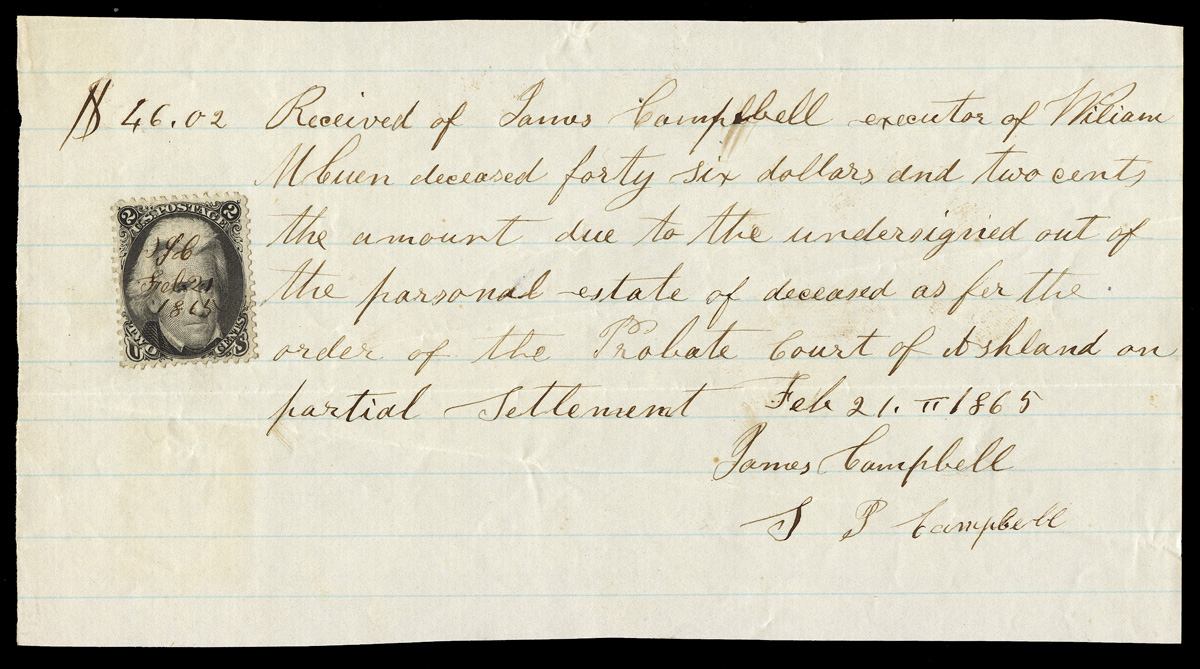 $ 46.02 Received of James Campbell executor of Wiliam
McCuen deceased forty six dollars and two cents
the amount due to the undersigned out of
the parsonal estate of deceased as fer the
order of the Probate Court of Ashland on
partial Settlement Feb 21. 1865
James Campbell
S P Campbell
2 U.S. POSTAGE 2
Feb 21
1865
TWO CENTS